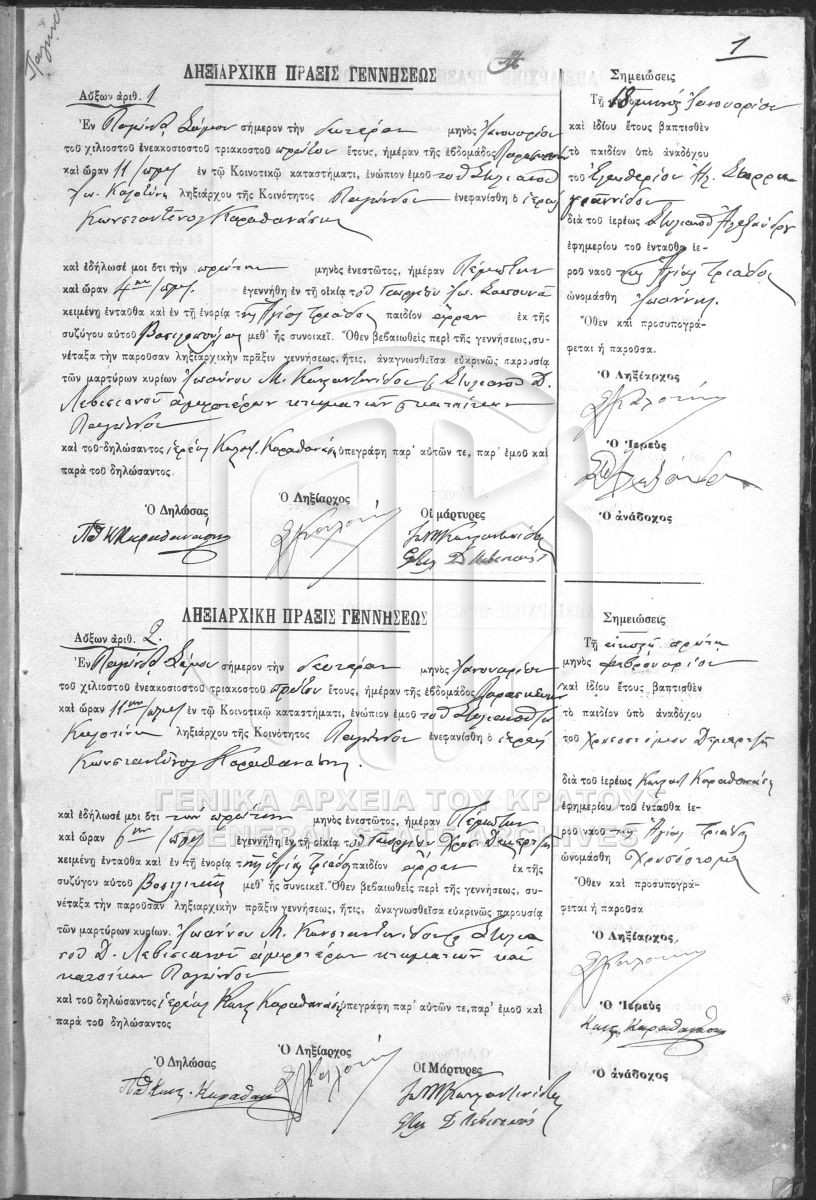 1
ΛΗΞΙΑΡΧΙΚΗ ΠΡΑΞΙΣ ΓΕΝΝΗΣΕΩΣ
Αὔξων ἀριθ. 1
Ἐν Παγώνδᾳ Σάμου σήμερον τὴν δευτέραν μηνὸς Ἰανουαρίου
τοῦ χιλιοστοῦ ἐνεακοσιοστοῦ τριακοστοῦ πρώτου ἔτους, ἡμέραν τῆς ἑβδομάδος Παρασκευὴν
καὶ ὥραν 11 π.μ. ἐν τῷ Κοινοτικῷ καταστήματι, ἐνώπιον ἐμοῦ τοῦ Στυλιανοῦ
Ἰω. ληξιάρχου τῆς Κοινότητος Παγώνδου ἐνεφανίσθη ὁ ἱερεὺς
Κωνσταντῖνος Καραθανάσης
καὶ ἐδήλωσέ μοι ὅτι τὴν πρώτην μηνὸς ἐνεστῶτος, ἡμέραν Πέμπτην
καὶ ὥραν 4ην π.μ. ἐγεννήθη ἐν τῇ οἰκίᾳ τοῦ Γεωργίου Ἰω.
κειμένῃ ἐνταῦθα καὶ ἐν τῇ ἐνορίᾳ τῆς Ἁγίας Τριάδος παιδίον ἄρρεν ἐκ τῆς
συζύγου αὐτοῦ μεθ᾽ ἧς συνοικεῖ. Ὅθεν βεβαιωθεὶς περὶ τῆς γεννήσεως, συ-
νέταξα τὴν παροῦσαν ληξιαρχικὴν πρᾶξιν γεννήσεως, ἥτις, ἀναγνωσθεῖσα εὐκρινῶς παρουσίᾳ
τῶν μαρτύρων κυρίων Ἰωάννου Μ. Κωνσταντινίδου Στυλιανοῦ Δ.
Λεβισιανοῦ ἀμφοτέρων κτηματιῶν κατοίκων
Παγώνδου
καὶ τοῦ δηλώσαντος ἱερέως Καραθανάση ὑπεγράφη παρ᾽ αὐτῶν τε, παρ᾽ ἐμοῦ καὶ
παρὰ τοῦ δηλώσαντος
Ὁ Δηλώσας
Ὁ Ληξίαρχος
Οἱ μάρτυρες
Σημειώσεις
Τῇ 18 μηνὸς Ἰανουαρίου
καὶ ἰδίου ἔτους βαπτισθὲν
τὸ παιδίον ὑπὸ ἀναδόχου
τοῦ Ἐλευθερίου
διὰ τοῦ ἱερέως Στυλιανοῦ Ἀλεξάνδρου
ἐφημερίου τοῦ ἐνταῦθα ἱε-
ροῦ ναοῦ τῆς Ἁγίας Τριάδος
ὠνομάσθη Ἰωάννης
Ὅθεν καὶ προσυπογρά-
φεται ἡ παροῦσα.
Ὁ Ληξίαρχος
Ὁ Ἱερεὺς
Ὁ ἀνάδοχος
ΛΗΞΙΑΡΧΙΚΗ ΠΡΑΞΙΣ ΓΕΝΝΗΣΕΩΣ
Αὔξων ἀριθ. 2.
Ἐν Παγώνδᾳ Σάμου σήμερον τὴν δευτέραν μηνὸς Ἰανουαρίου
τοῦ χιλιοστοῦ ἐνεακοσιοστοῦ τριακοστοῦ πρώτου ἔτους, ἡμέραν τῆς ἑβδομάδος Παρασκευὴν
καὶ ὥραν 11ην π.μ. ἐν τῷ Κοινοτικῷ καταστήματι, ἐνώπιον ἐμοῦ τοῦ Στυλιανοῦ Ἰω.
ληξιάρχου τῆς Κοινότητος Παγώνδου ἐνεφανίσθη ὁ ἱερεὺς
Κωνσταντῖνος Καραθανάσης.
καὶ ἐδήλωσέ μοι ὅτι τὴν πρώτην μηνὸς ἐνεστῶτος, ἡμέραν Πέμπτην
καὶ ὥραν 6ην π.μ. ἐγεννήθη ἐν τῇ οἰκίᾳ τοῦ Γεωργίου Χρυσ.
κειμένῃ ἐνταῦθα καὶ ἐν τῇ ἐνορίᾳ τῆς Ἁγίας Τριάδος παιδίον ἄρρεν ἐκ τῆς
συζύγου αὐτοῦ Βασιλικῆς μεθ᾽ ἧς συνοικεῖ. Ὅθεν βεβαιωθεὶς περὶ τῆς γεννήσεως, συ-
νέταξα τὴν παροῦσαν ληξιαρχικὴν πρᾶξιν γεννήσεως, ἥτις, ἀναγνωσθεῖσα εὐκρινῶς παρουσίᾳ
τῶν μαρτύρων κυρίων. Ἰωάννου Μ. Κωνσταντινίδου Στυλια-
νοῦ Δ. Λεβισιανοῦ ἀμφοτέρων κτηματιῶν καὶ
κατοίκων Παγώνδου
καὶ τοῦ δηλώσαντος ἱερέως Κων. Καραθανάση ὑπεγράφη παρ᾽ αὐτῶν τε, παρ᾽ ἐμοῦ καὶ
παρὰ τοῦ δηλώσαντος
Ὁ Δηλώσας
Ὁ Ληξίαρχος
Οἱ Μάρτυρες
Σημειώσεις
Τῇ εἰκοστῇ πρώτῃ
μηνὸς Φεβρουαρίου
καὶ ἰδίου ἔτους βαπτισθὲν
τὸ παιδίον ὑπὸ ἀναδόχου
τοῦ Χρυσοστόμου
διὰ τοῦ ἱερέως Καραθανάση
ἐφημερίου τοῦ ἐνταῦθα ἱε-
ροῦ ναοῦ τῆς Ἁγίας Τριάδος
ὠνομάσθη Χρυσόστομος
Ὅθεν καὶ προσυπογρά-
φεται ἡ παροῦσα
Ὁ Ληξίαρχος
Ὁ Ἱερεὺς
Ὁ ἀνάδοχος
ΓΕΝΙΚΑ ΑΡΧΕΙΑ ΤΟΥ ΚΡΑΤΟΥΣ
GENERAL STATE ARCHIVES